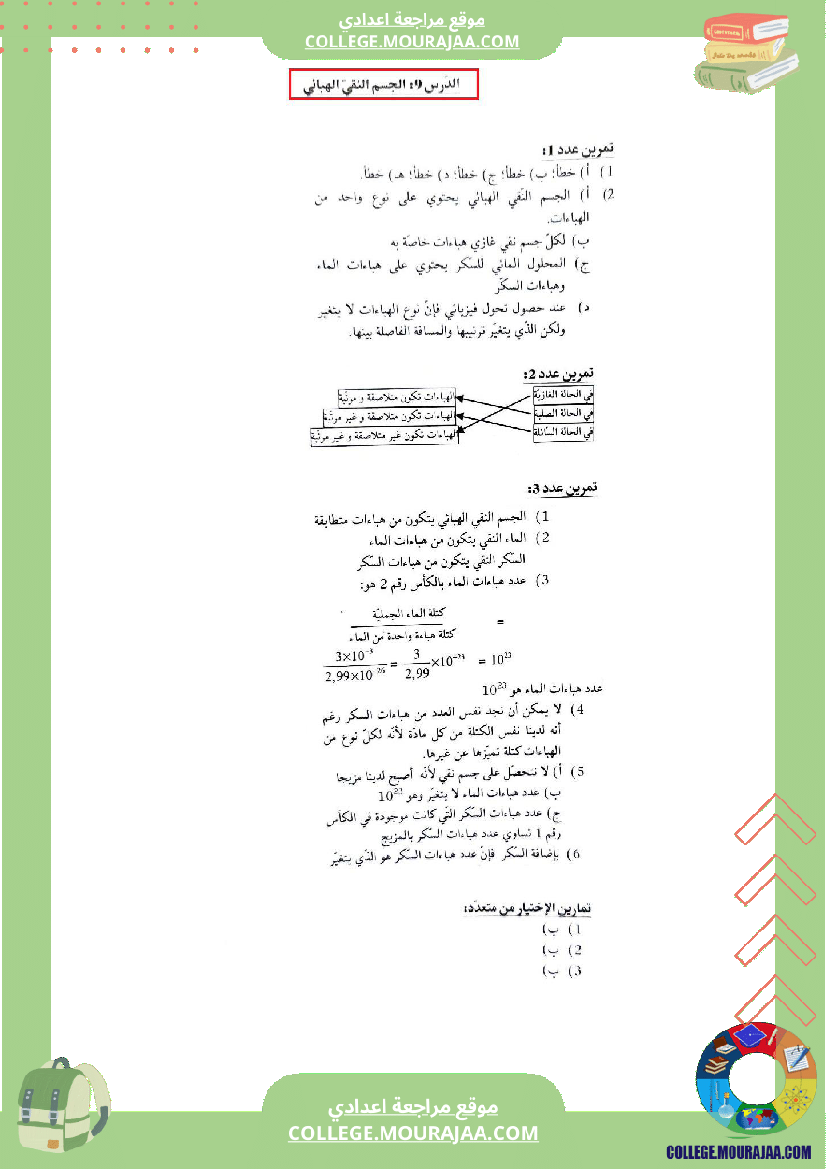 موقع مراجعة اعدادي
COLLEGE.MOURAJAA.COM
الدرس 9: الجسم النقيّ الهبائي
تمرين عدد 1:
1) أ) خطأ؛ ب) خطأ؛ ج) خطأ؛ د) خطأ؛ هـ) خطأ.
2) أ) الجسم النّقي الهبائي يحتوي على نوع واحد من
الهباءات.
ب) لكلّ جسم نقي غازي هباءات خاصّة به
ج) المحلول المائي للسّكر يحتوي على هباءات الماء
وهباءات السكّر
د) عند حصول تحول فيزيائي فإنّ نوع الهباءات لا يتغير
ولكن الذّي يتغيّر ترتيبها والمسافة الفاصلة بينها.
تمرين عدد 2:
في الحالة الغازيّة
الهباءات تكون متلاصقة و مرتّبة
في الحالة الصلبة
الهباءات تكون متلاصقة و غير مرتّبة
في الحالة السّائلة
الهباءات تكون غير متلاصقة و غير مرتّبة
تمرين عدد 3:
1) الجسم النقي الهبائي يتكون من هباءات متطابقة
2) الماء النقي يتكون من هباءات الماء
السّكر النقي يتكون من هباءات السّكر
3) عدد هباءات الماء بالكأس رقم 2 هو:
= كتلة الماء الجمليّة
كتلة هباءة واحدة من الماء
3×10⁻³ / 2,99×10⁻²⁶ = 3 / 2,99 ×10⁻²³ = 10²³
عدد هباءات الماء هو 10²³
4) لا يمكن أن نجد نفس العدد من هباءات السكر رغم
أنه لدينا نفس الكتلة من كل مادّة لأنّه لكلّ نوع من
الهباءات كتلة تميّزها عن غيرها.
5) أ) لا نتحصّل على جسم نقي لأنّه أصبح لدينا مزيجا
ب) عدد هباءات الماء لا يتغيّر وهو 10²³
ج) عدد هباءات السّكر التّي كانت موجودة في الكأس
رقم 1 تساوي عدد هباءات السّكر بالمزيج
6) بإضافة السّكر فإنّ عدد هباءات السّكر هو الذّي يتغيّر
تمارين الإختيار من متعدّد:
1) ب)
2) ب)
3) ب)
موقع مراجعة اعدادي
COLLEGE.MOURAJAA.COM
COLLEGE.MOURAJAA.COM